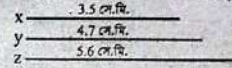 x 3.5 সে.মি.
y 4.7 সে.মি.
z 5.6 সে.মি.